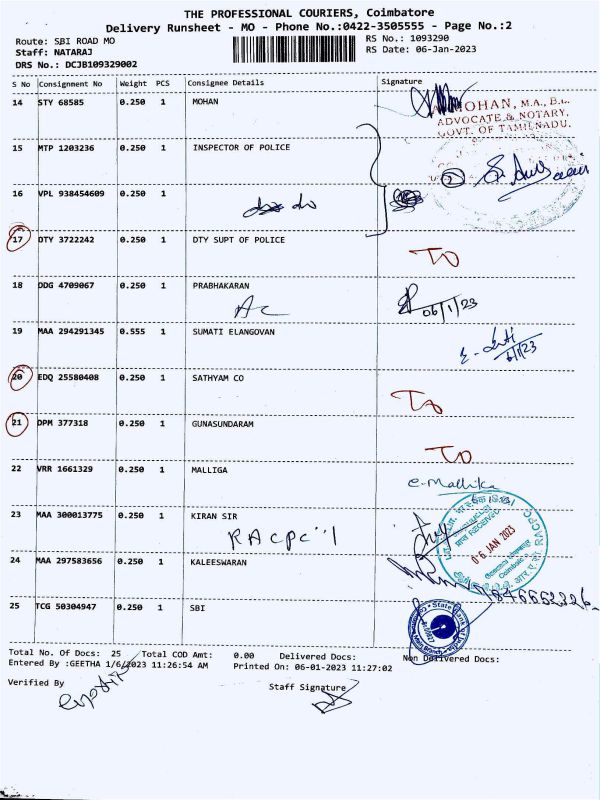 THE PROFESSIONAL COURIERS, Coimbatore
Delivery Runsheet - MO - Phone No.:0422-3505555 - Page No.:2
Route: SBI ROAD MO
RS No.: 1093290
Staff: NATARAJ
RS Date: 06-Jan-2023
DRS No.: DCJB109329002
S No Consignment No Weight PCS Consignee Details Signature
14 STY 68585 0.250 1 MOHAN
MOHAN, M.A., B.L.
ADVOCATE & NOTARY,
GOVT. OF TAMILNADU.
15 MTP 1203236 0.250 1 INSPECTOR OF POLICE
2
16 VPL 938454609 0.250 1
do
17 DTY 3722242 0.250 1 DTY SUPT OF POLICE
TO
18 DDG 4709067 0.250 1 PRABHAKARAN
AC
06/1/23
19 MAA 294291345 0.555 1 SUMATI ELANGOVAN
6/1/23
20 EDQ 25580408 0.250 1 SATHYAM CO
TO
21 DPM 377318 0.250 1 GUNASUNDARAM
TO
22 VRR 1661329 0.250 1 MALLIGA
e-Mallika
23 MAA 300013775 0.250 1 KIRAN SIR
RACPC
06 JAN 2023
RACPC
24 MAA 297583656 0.250 1 KALEESWARAN
25 TCG 50304947 0.250 1 SBI
State Bank of
Total No. Of Docs: 25 Total COD Amt: 0.00 Delivered Docs: Non Delivered Docs:
Entered By :GEETHA 1/6/2023 11:26:54 AM Printed On: 06-01-2023 11:27:02
Verified By
Staff Signature